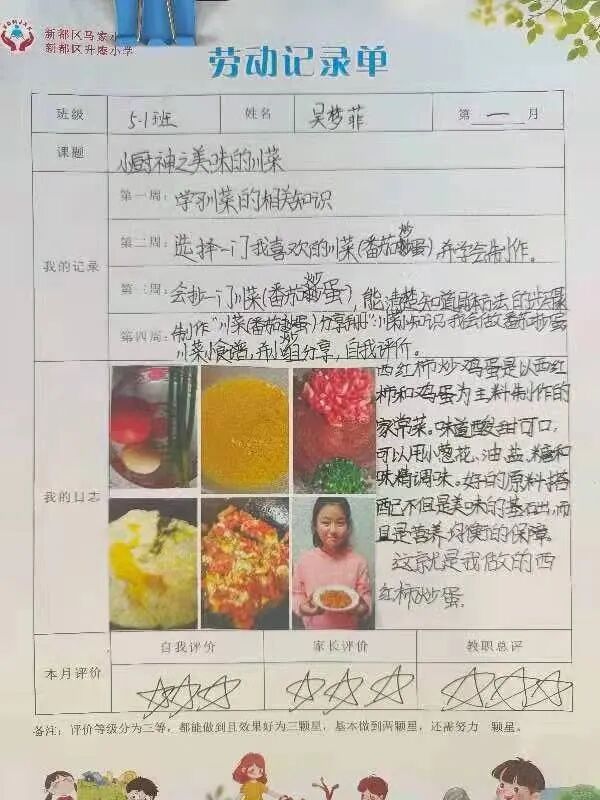 新都区马家小
新都区升庵小学
劳动记录单
班级 5.1班 姓名 吴梦菲 第一月
课题 小厨神之美味的川菜
我的记录
第一周：学习川菜的相关知识
第二周：选择一门我喜欢的川菜(番茄炒蛋)，并学会制作。
第三周：会抄一门川菜(番茄炒蛋)，能清楚知道用方法的步骤
第四周：制作"川菜(番茄炒蛋)分享册"：川菜小知识，我会做番茄炒蛋
川菜小食谱，并小组分享，自我评价。
我的日志
西红柿炒鸡蛋是以西红
柿和鸡蛋为主料制作的
家常菜。味道酸甜可口，
可以用小葱花、油、盐、糖和
味精调味。好的原料搭
配不但是美味的基础，而
且是营养均衡的保障。
这就是我做的西
红柿炒蛋。
本月评价
自我评价 家长评价 教职总评
备注：评价等级分为三等，都能做到且效果好为三颗星，基本做到两颗星，还需努力一颗星。